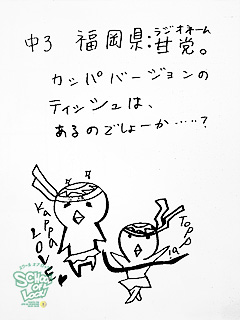 中3 福岡県:甘党。
ラジオネーム
カッパバージョンの
ティッシュは、
あるのでしょーか……?
Kappa
LOVE
SCHOOL
OF
LOCK!